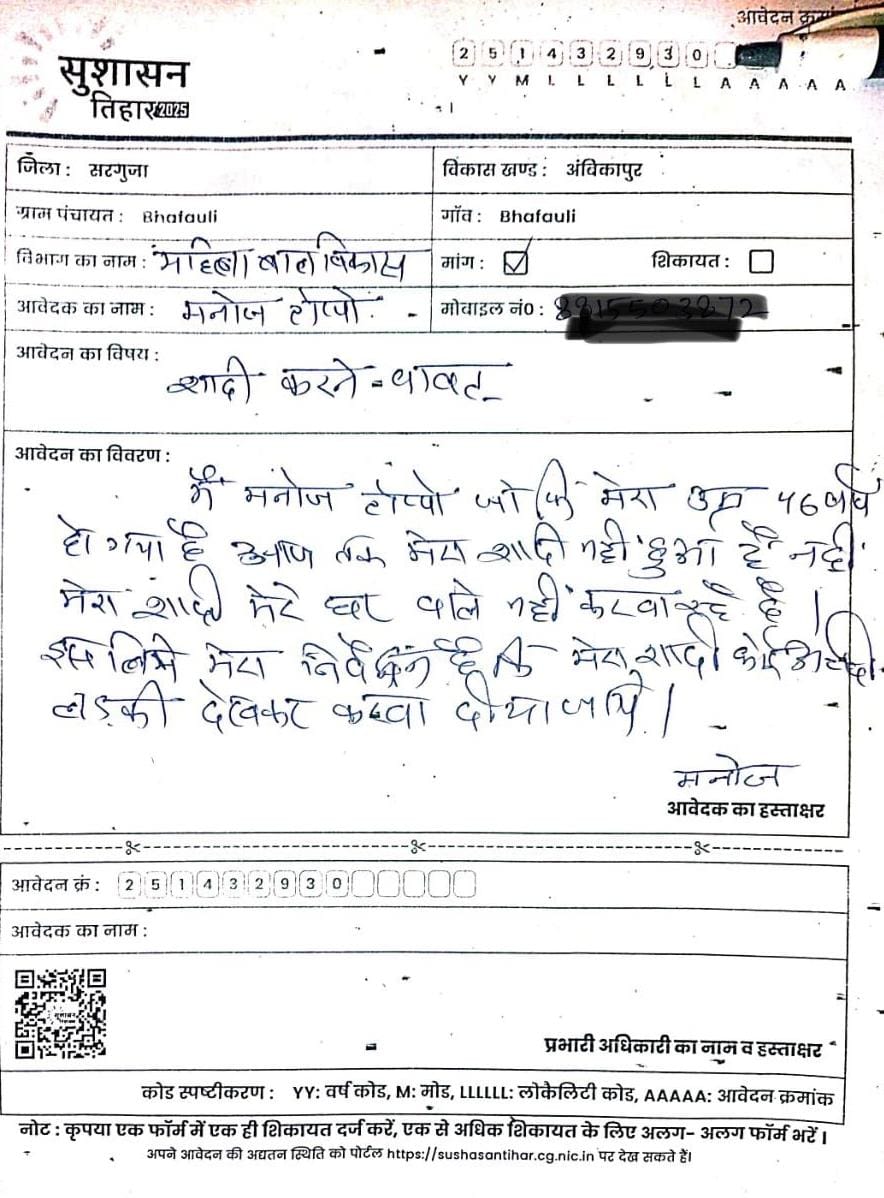 आवेदन
सुशासन
तिहार 2025
2 5 1 4 3 2 9 3 0
Y Y M L L L L L L A A A A A
जिला : सरगुजा
विकास खण्ड : अंबिकापुर
ग्राम पंचायत : Bhafauli
गाँव : Bhafauli
विभाग का नाम : महिला बाल विकास
मांग : ☑ शिकायत : ☐
आवेदक का नाम : मनोज टोप्पो
मोबाइल नं0 :
आवेदन का विषय :
शादी करने - बावत्
आवेदन का विवरण :
मैं मनोज टोप्पो जो कि मेरा उम्र 46 वर्ष
हो गया है आज तक मेरा शादी नहीं हुआ है
मेरा शादी मेरे घर वाले नहीं करवा रहे है ।
इस लिये मेरा निवेदन है कि मेरा शादी कोई
लड़की देखकर करवा दीया जाये ।
मनोज
आवेदक का हस्ताक्षर
आवेदन क्रं : 2 5 1 4 3 2 9 3 0
आवेदक का नाम :
सुशासन
प्रभारी अधिकारी का नाम व हस्ताक्षर
कोड स्पष्टीकरण : YY: वर्ष कोड, M: मोड, LLLLLL: लोकैलिटी कोड, AAAAA: आवेदन क्रमांक
नोट : कृपया एक फॉर्म में एक ही शिकायत दर्ज करें, एक से अधिक शिकायत के लिए अलग- अलग फॉर्म भरें ।
अपने आवेदन की अद्यतन स्थिति को पोर्टल https://sushasantihar.cg.nic.in पर देख सकते हैं।